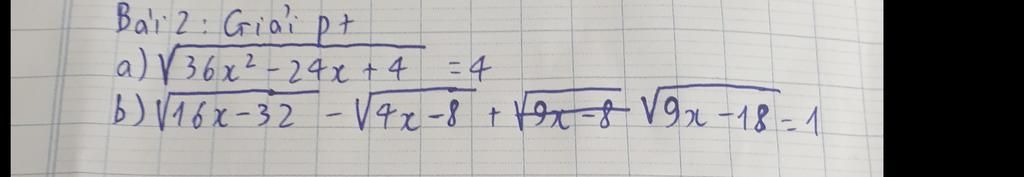 Bài 2: Giải pt
a) √(36x² - 24x + 4) = 4
b) √(16x - 32) - √(4x - 8) + √(9x - 8) √(9x - 18) = 1